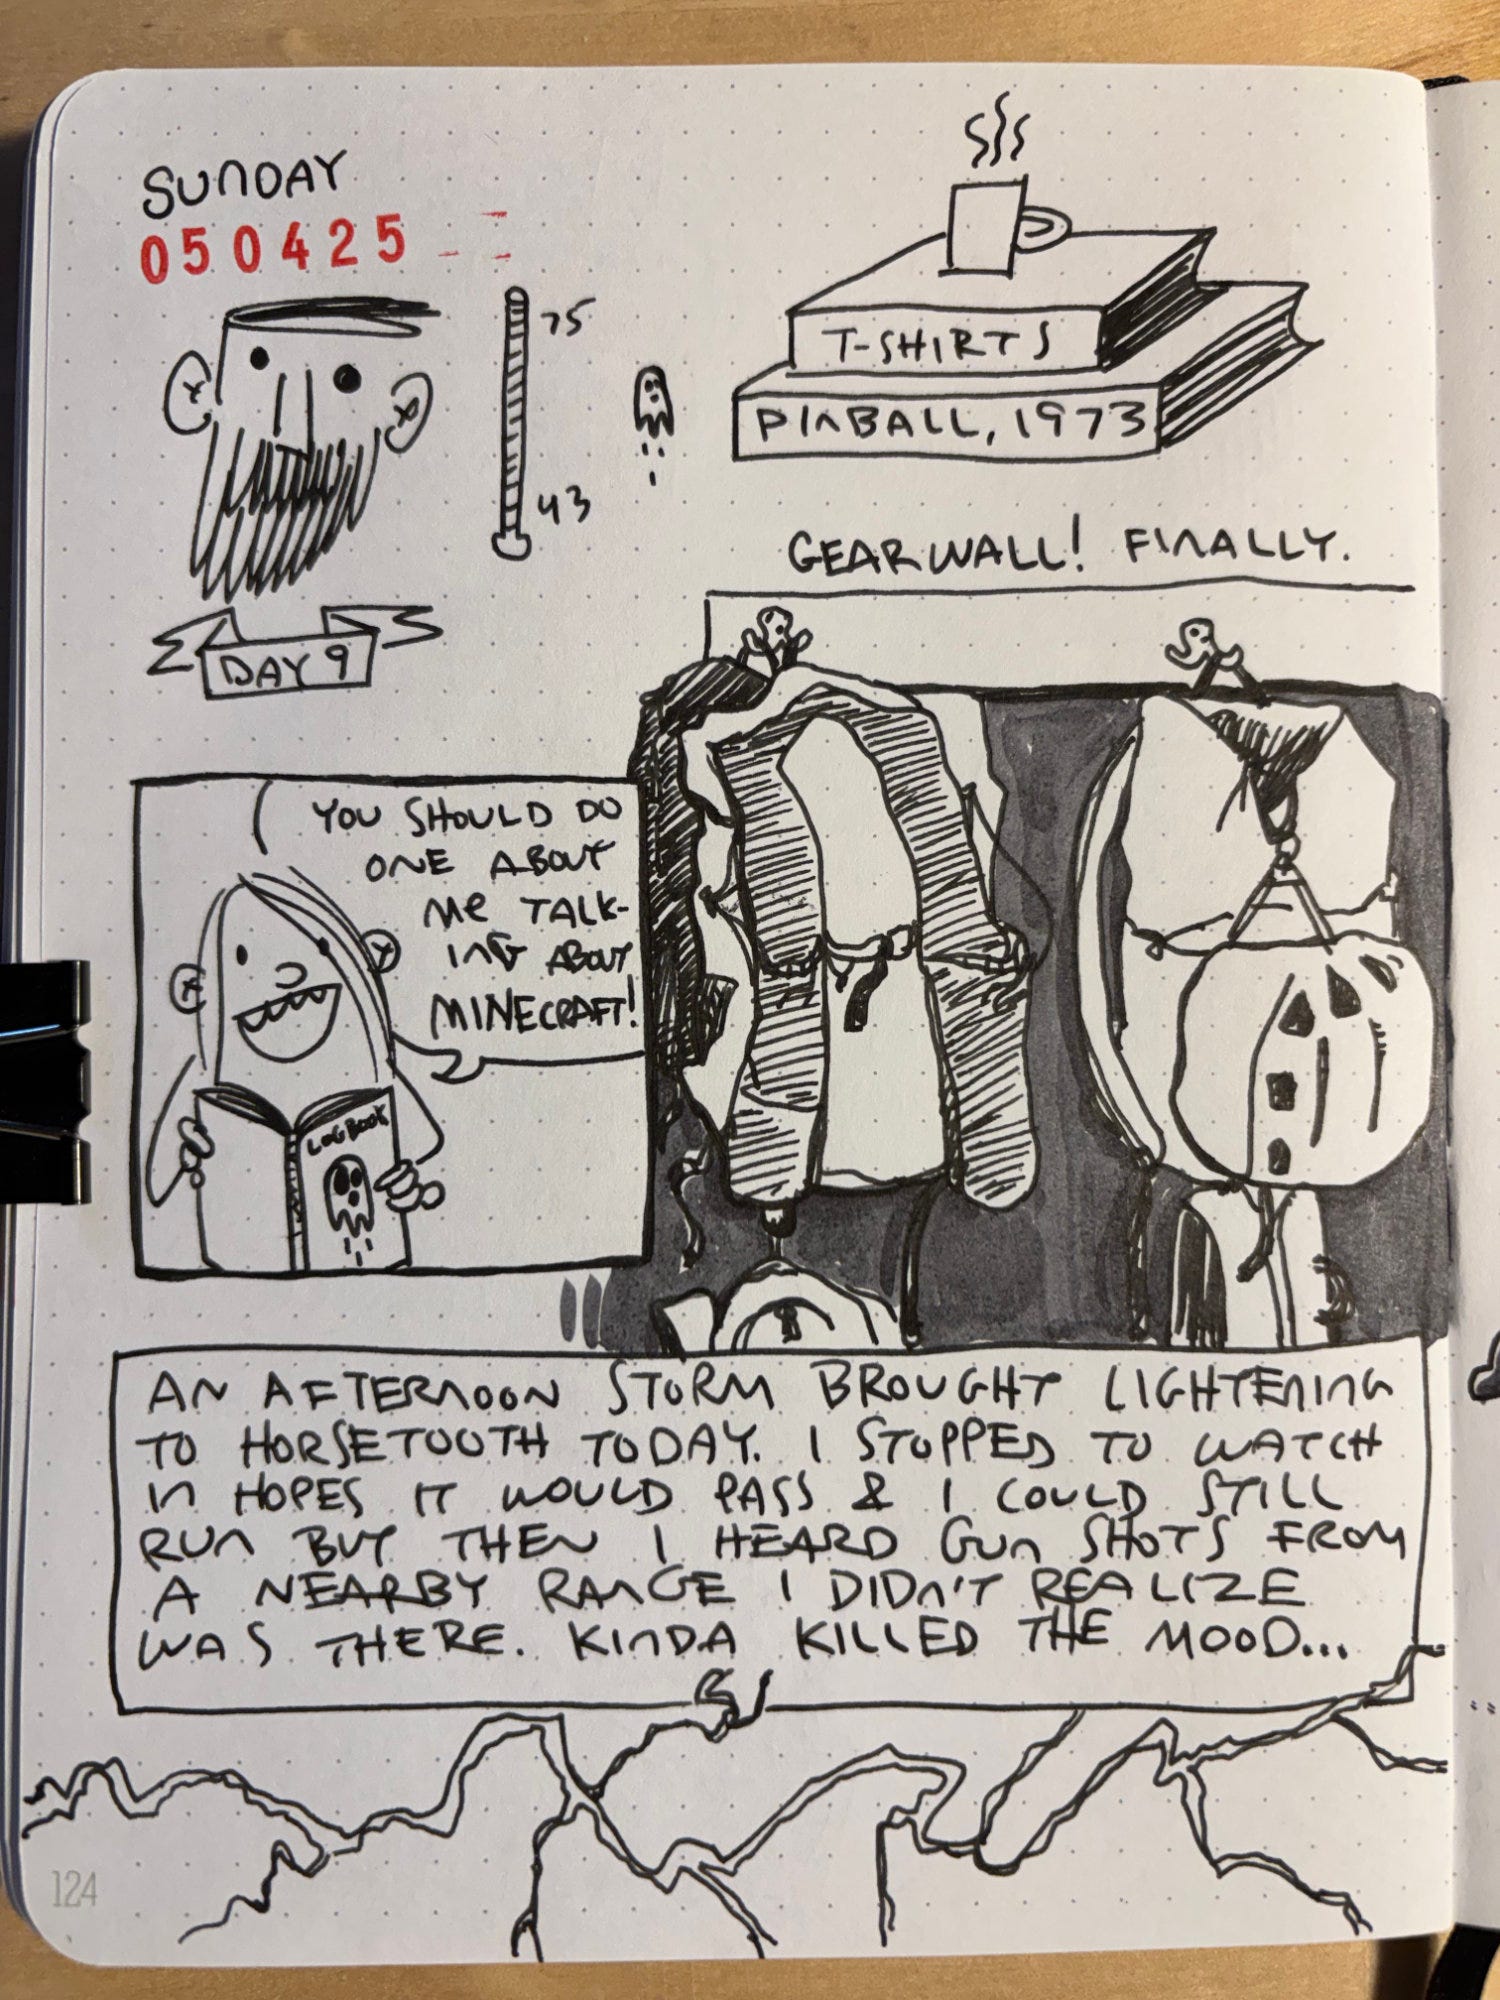 SUNDAY
050425
75
43
DAY 9
T-SHIRTS
PINBALL, 1973
GEAR WALL! FINALLY.
YOU SHOULD DO
ONE ABOUT
ME TALK-
ING ABOUT
MINECRAFT!
LOGBOOK
AN AFTERNOON STORM BROUGHT LIGHTENING
TO HORSETOOTH TODAY. I STOPPED TO WATCH
IN HOPES IT WOULD PASS & I COULD STILL
RUN BUT THEN I HEARD GUN SHOTS FROM
A NEARBY RANGE I DIDN'T REALIZE
WAS THERE. KINDA KILLED THE MOOD...
124